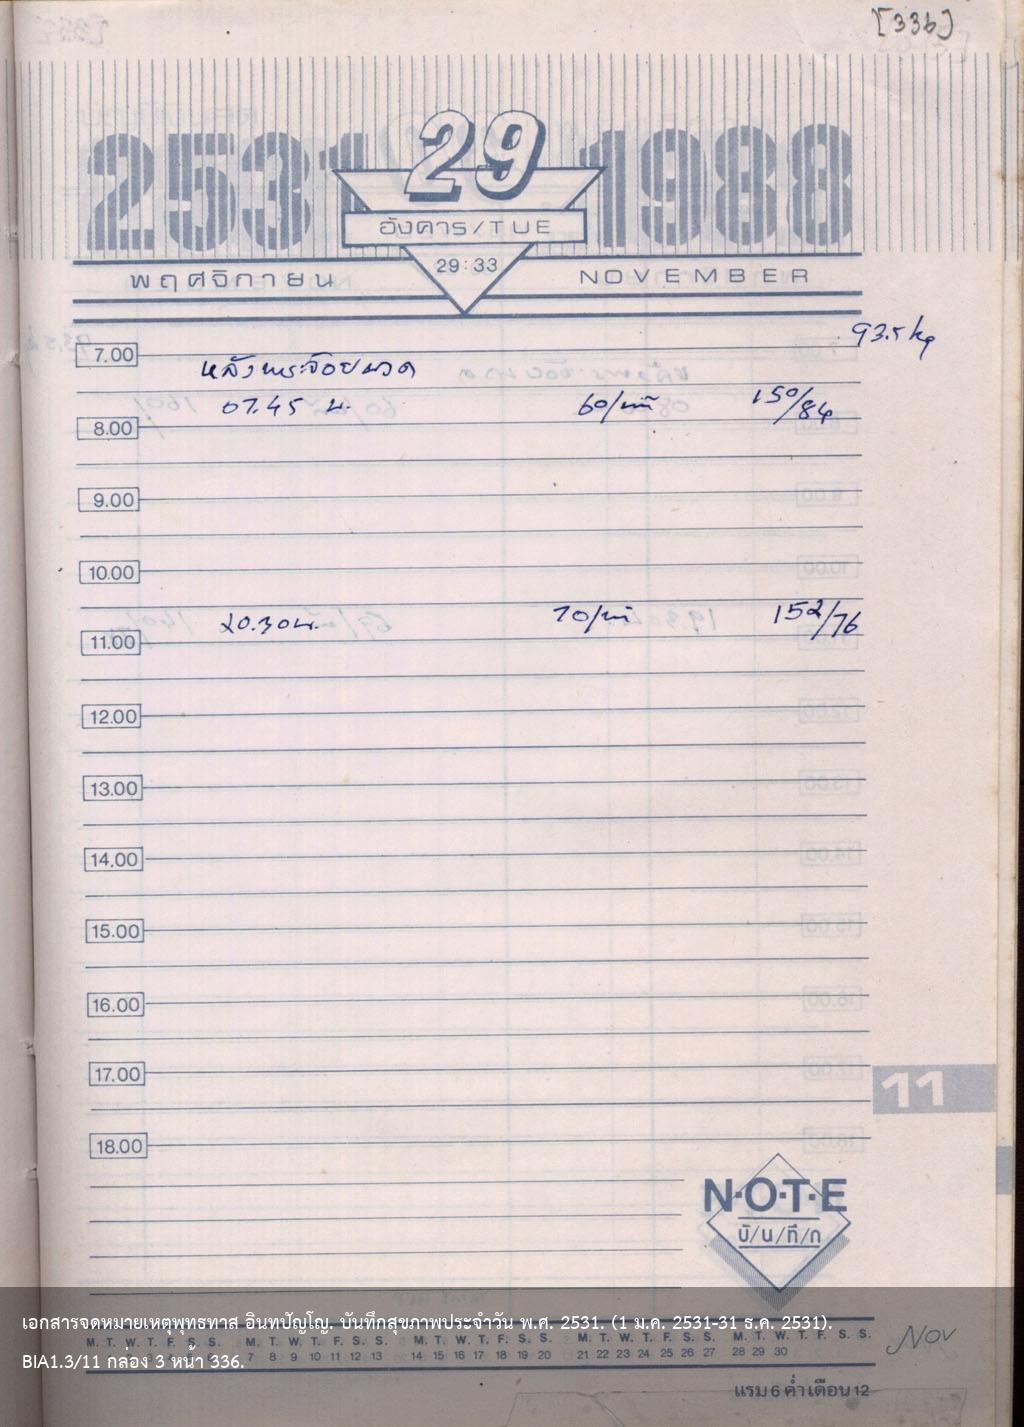 [336]
2531 29 1988
อังคาร/TUE
29:33
พฤศจิกายน NOVEMBER
93.5 kg
7.00
หลังพระจ้อยนวด
07.45 น. 60/นาที 150/84
8.00
9.00
10.00
20.30 น. 70/นาที 152/76
11.00
12.00
13.00
14.00
15.00
16.00
17.00
11
18.00
N·O·T·E
บั/น/ทึ/ก
เอกสารจดหมายเหตุพุทธทาส อินทปัญโญ. บันทึกสุขภาพประจำวัน พ.ศ. 2531. (1 ม.ค. 2531-31 ธ.ค. 2531).
M. T. W. T. F. S. S. M. T. W. T. F. S. S. M. T. W. T. F. S. S. M. T. W. T. F. S. S. M. T. W. T. F. S. S.
7 8 9 10 11 12 13 14 15 16 17 18 19 20 21 22 23 24 25 26 27 28 29 30
Nov
BIA1.3/11 กล่อง 3 หน้า 336.
แรม 6 ค่ำ เดือน 12